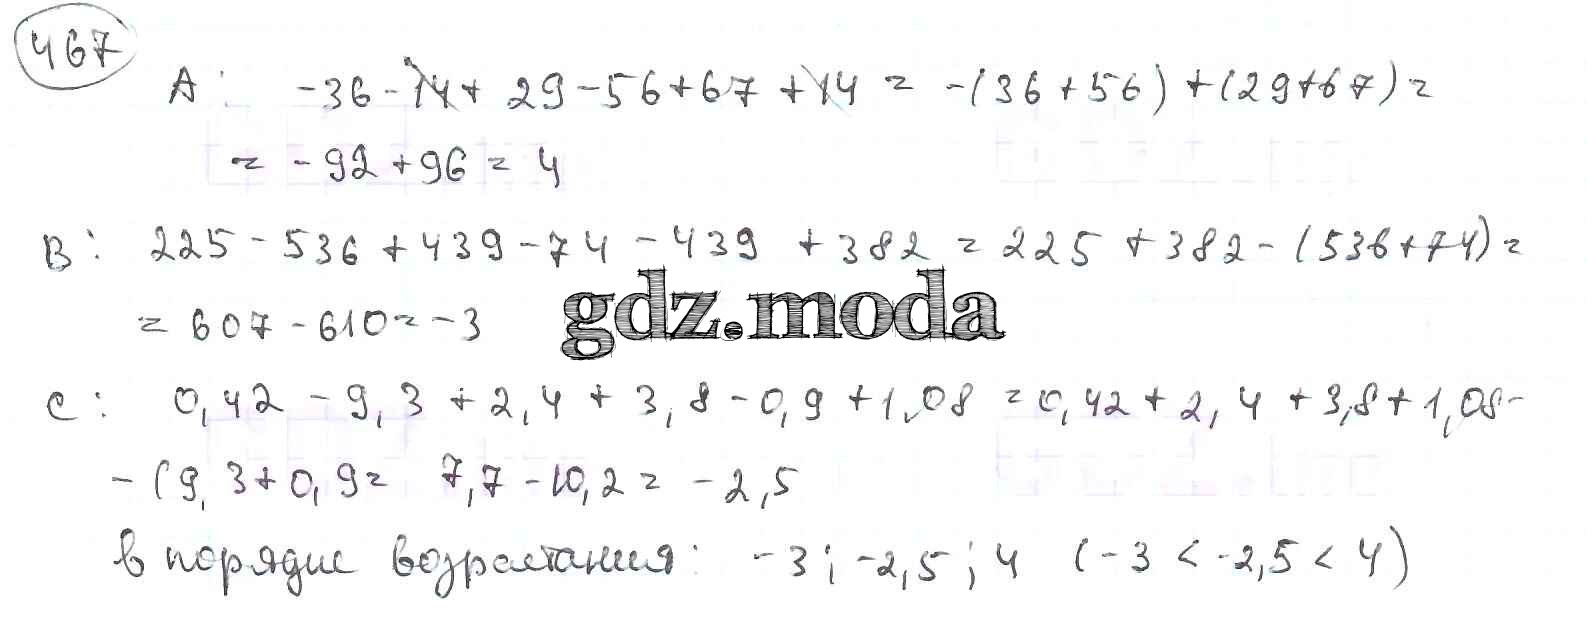 467
А: -36-14+29-56+67+14 = -(36+56)+(29+67)=
= -92+96 = 4
В: 225-536+439-74-439+382 = 225+382-(536+74)=
= 607-610=-3
gdz.moda
С: 0,42-9,3+2,4+3,8-0,9+1,08 = 0,42+2,4+3,8+1,08-
-(9,3+0,9= 7,7-10,2= -2,5
в порядке возрастания: -3; -2,5; 4 (-3 < -2,5 < 4)